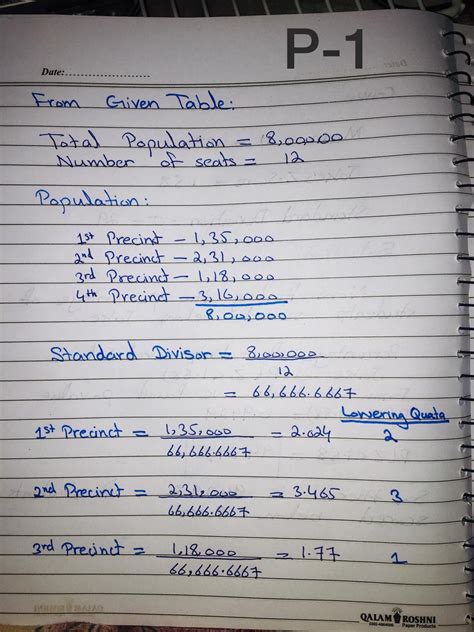 P-1
Date:........................
From Given Table:
Total Population = 8,00,000
Number of seats = 12
Population:
1st Precinct - 1,35,000
2nd Precinct - 2,31,000
3rd Precinct - 1,18,000
4th Precinct - 3,16,000
8,00,000
Standard Divisor = 8,00,000
12
= 66,666.6667
Lowering Quata
1st Precinct = 1,35,000 = 2.024 2
66,666.6667
2nd Precinct = 2,31,000 = 3.465 3
66,666.6667
3rd Precinct = 1,18,000 = 1.77 1
66,666.6667
QALAM ROSHNI
Paper Products